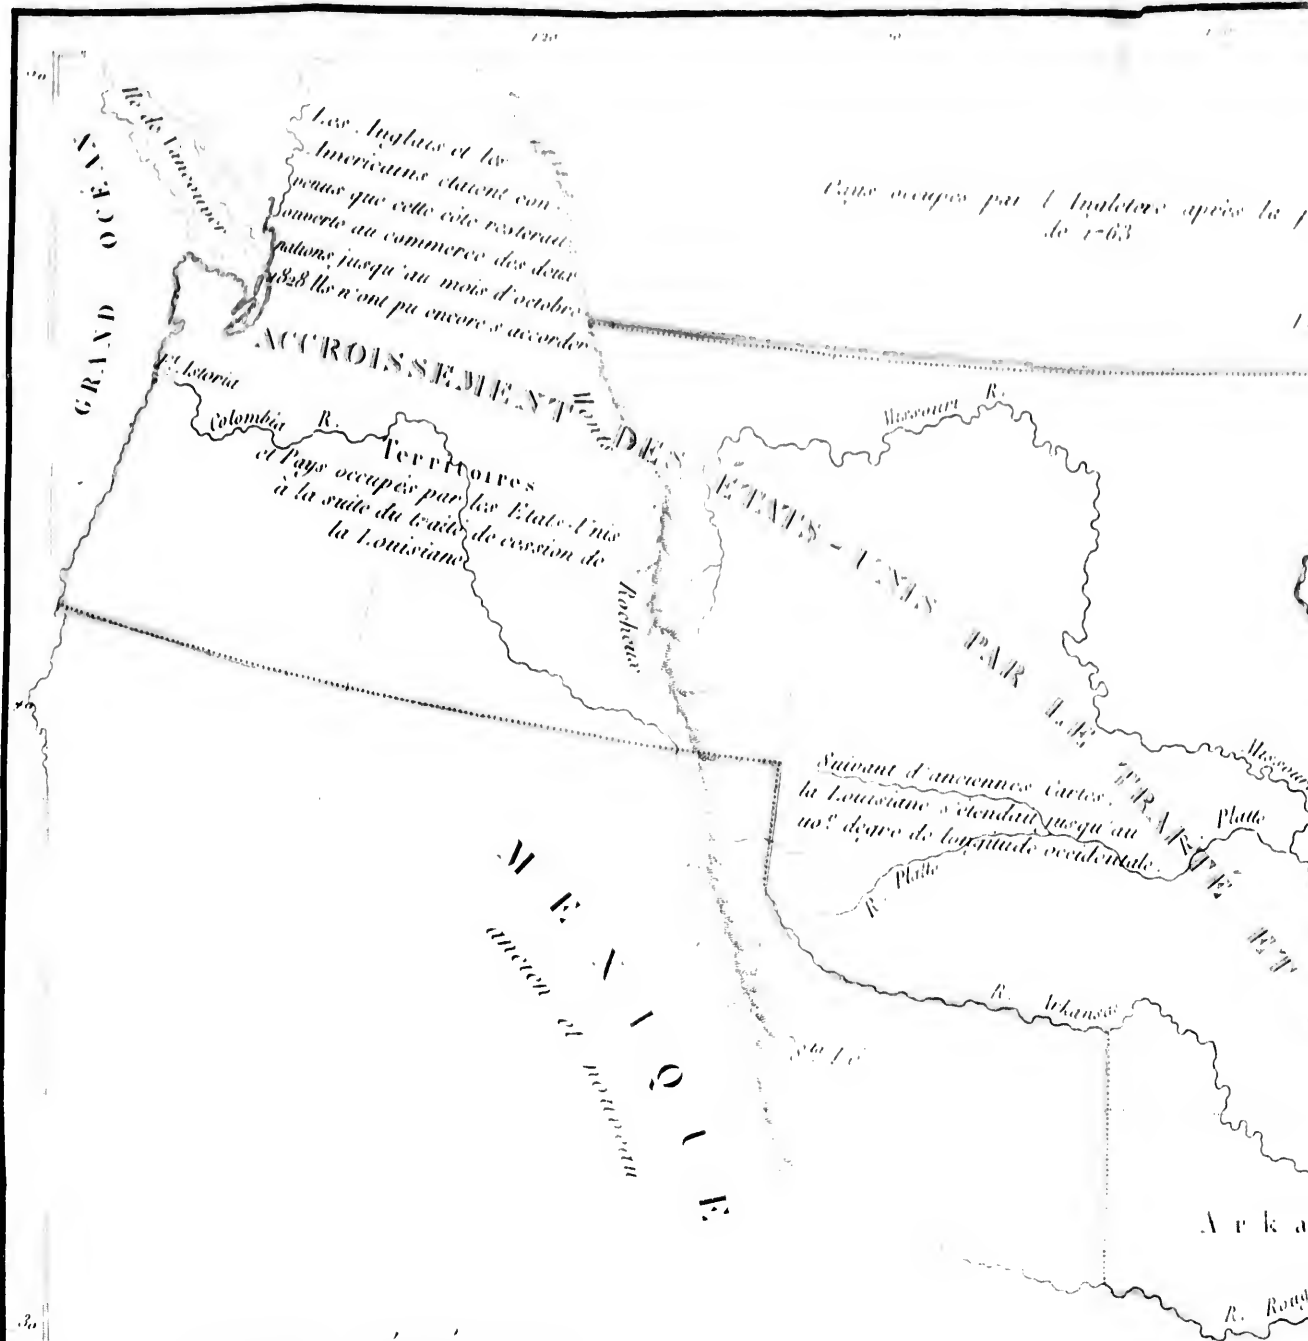 120
50
Ile de Vancouver
GRAND OCÉAN
Les Anglais et les
Américains étaient con-
venus que cette côte resterait
ouverte au commerce des deux
nations jusqu'au mois d'octobre
1828 Ils n'ont pu encore s'accorder
Pays occupés par l'Angleterre après la p
de 1763
ACCROISSEMENT DES ÉTATS-UNIS PAR LE TRAITÉ ET
Ft Astoria
Colombia R.
Territoires
et Pays occupés par les Etats-Unis
à la suite du traité de cession de
la Louisiane
Monts
Rocheux
Missouri R.
40
Missouri
Suivant d'anciennes Cartes,
la Louisiane s'étendait jusqu'au
110e dégré de longitude occidentale.
Platte
R. Platte
MEXIQUE
ancien et nouveau
R. Arkansas
Sta Fé
Arka
R. Roug
30